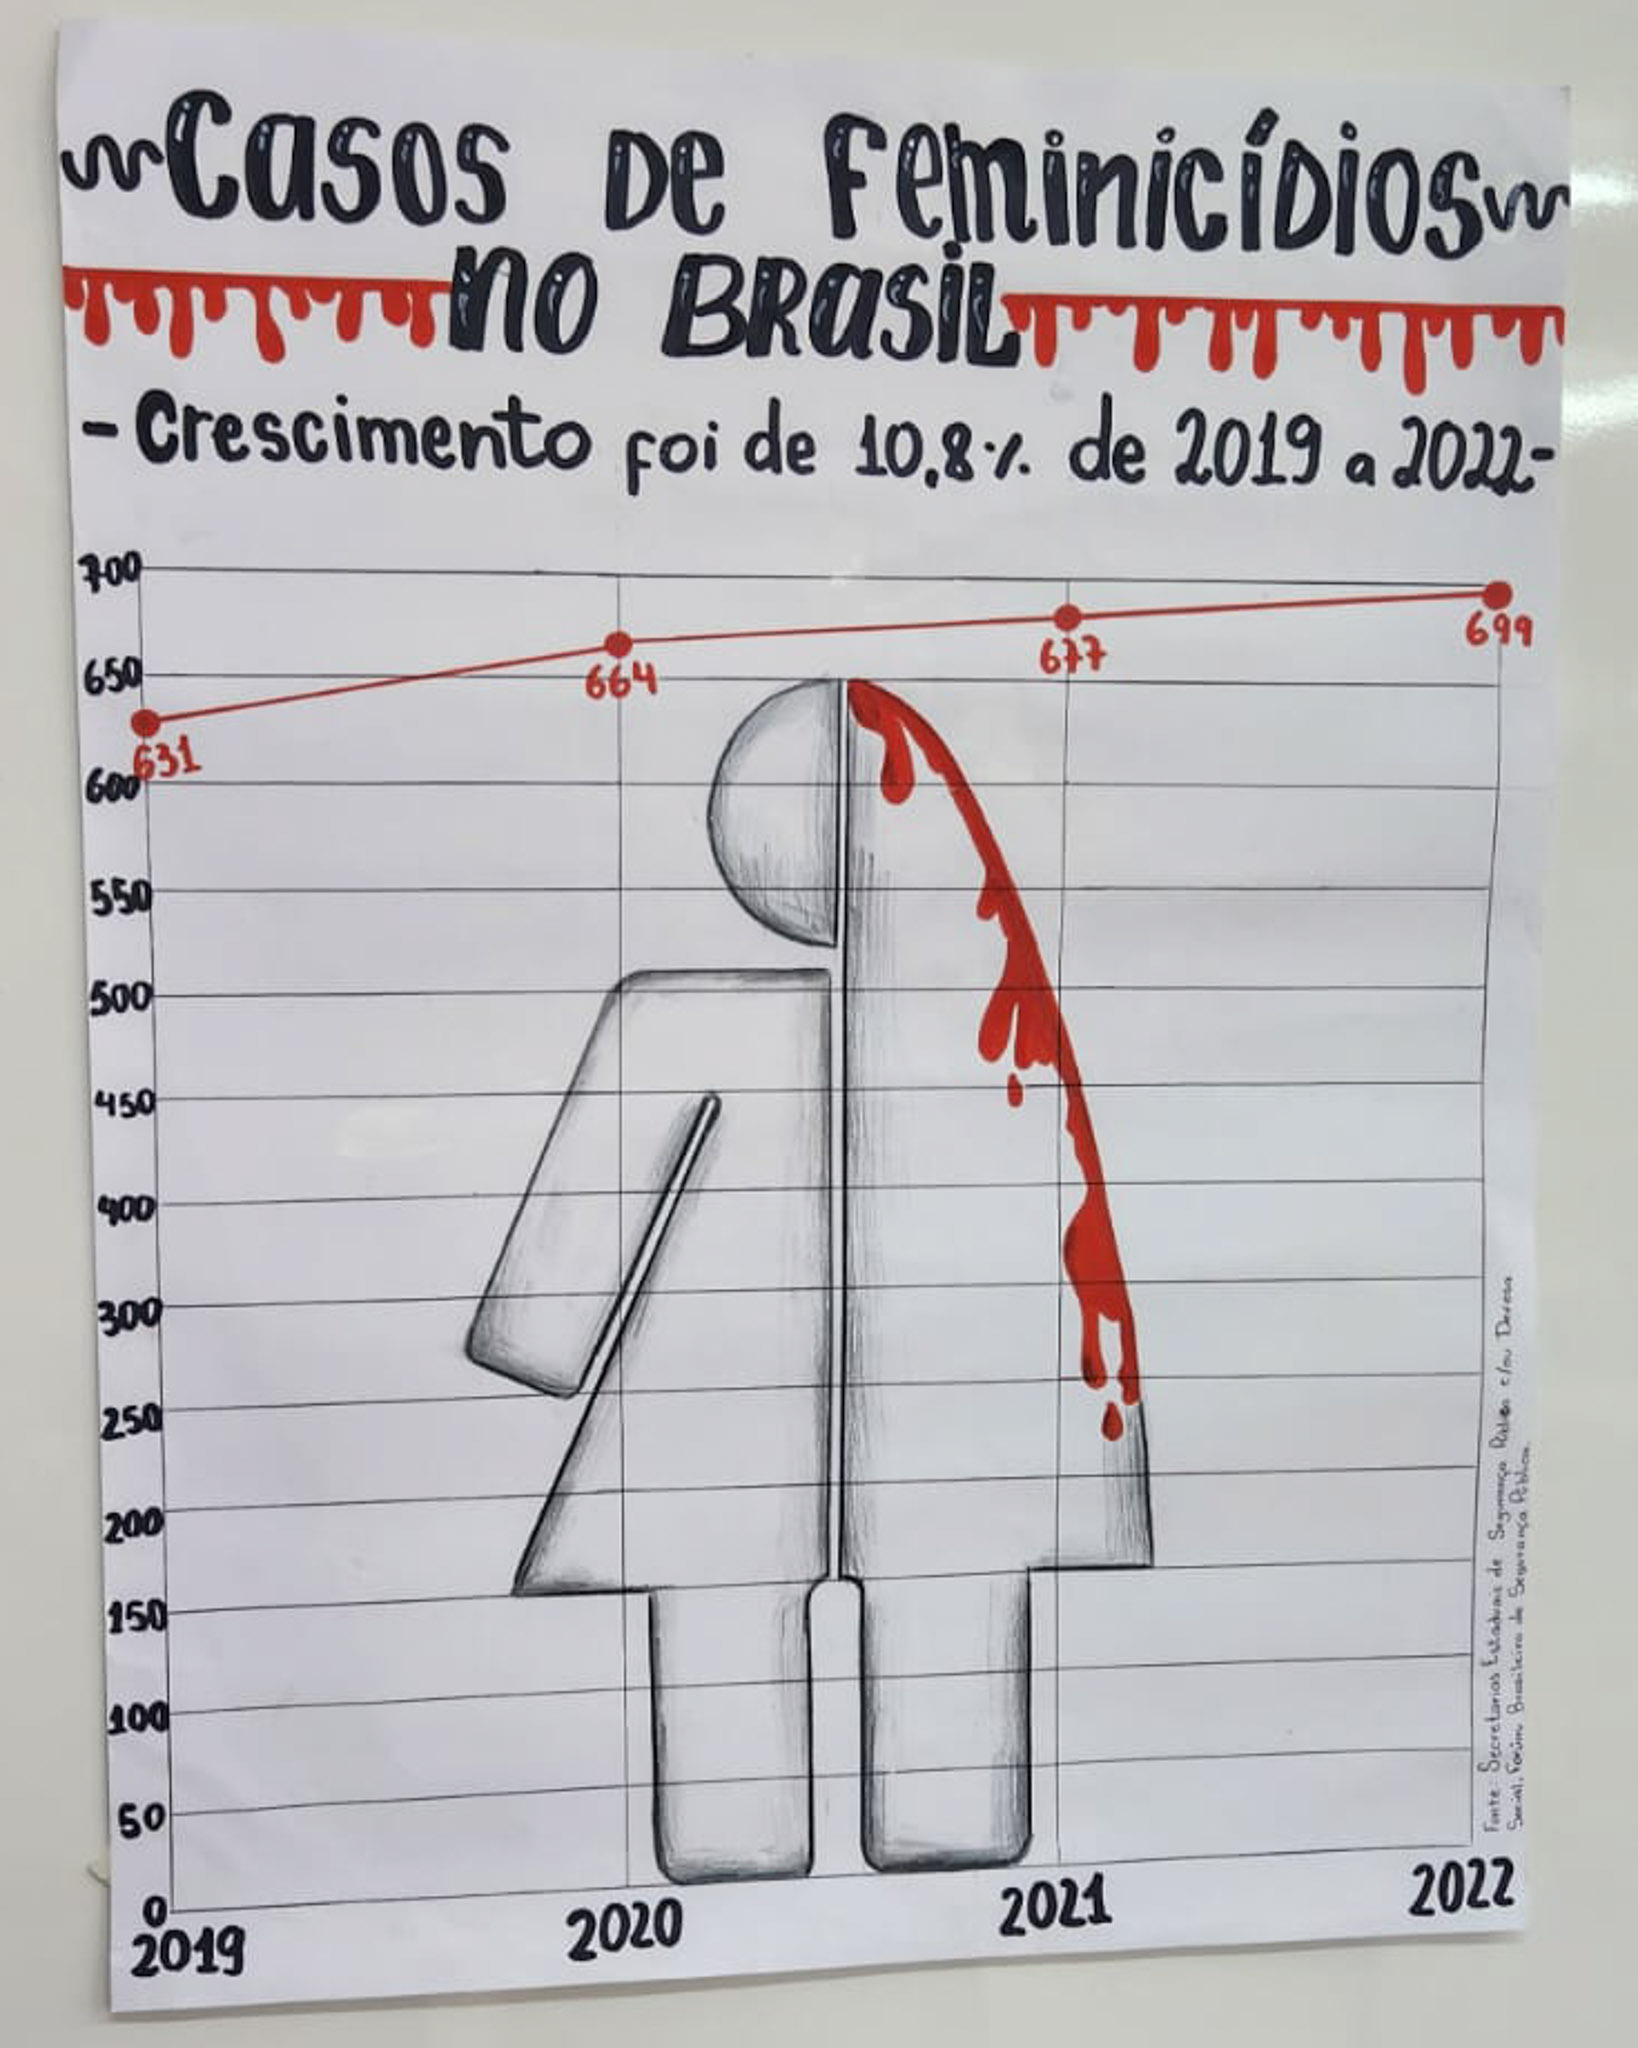 Casos de Feminicídios
no Brasil
- Crescimento foi de 10,8% de 2019 a 2022-
700
650
600
550
500
450
400
300
250
200
150
100
50
0
631
664
677
699
2019
2020
2021
2022
Fonte: Secretarias Estaduais de Segurança Pública e/ou Defesa
Social. Fórum Brasileiro de Segurança Pública.